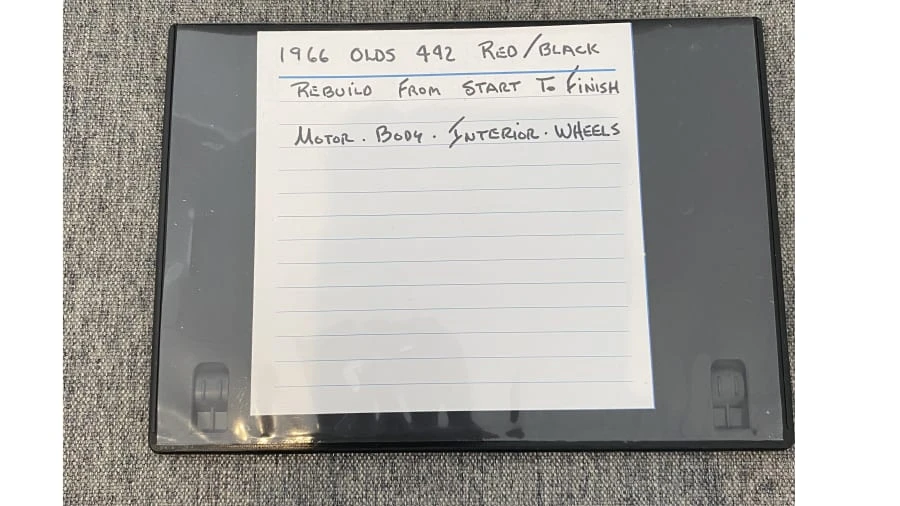 1966 OLDS 442 RED/BLACK
REBUILD FROM START TO FINISH
MOTOR . BODY . INTERIOR . WHEELS